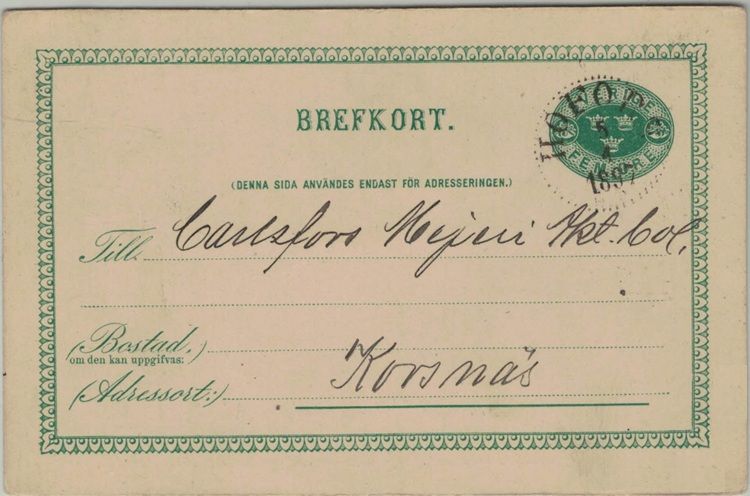 BREFKORT.
HOFORS
5
4
1897
FEM ÖRE
(DENNA SIDA ANVÄNDES ENDAST FÖR ADRESSERINGEN.)
Till Carlsfors Mejeri Akt. Bol.
(Bostad,)
om den kan uppgifvas:
(Adressort:) Korsnäs